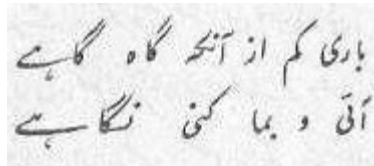 باری کم از آنکه گاه گاہے
آئی و بما کنی نگاہے